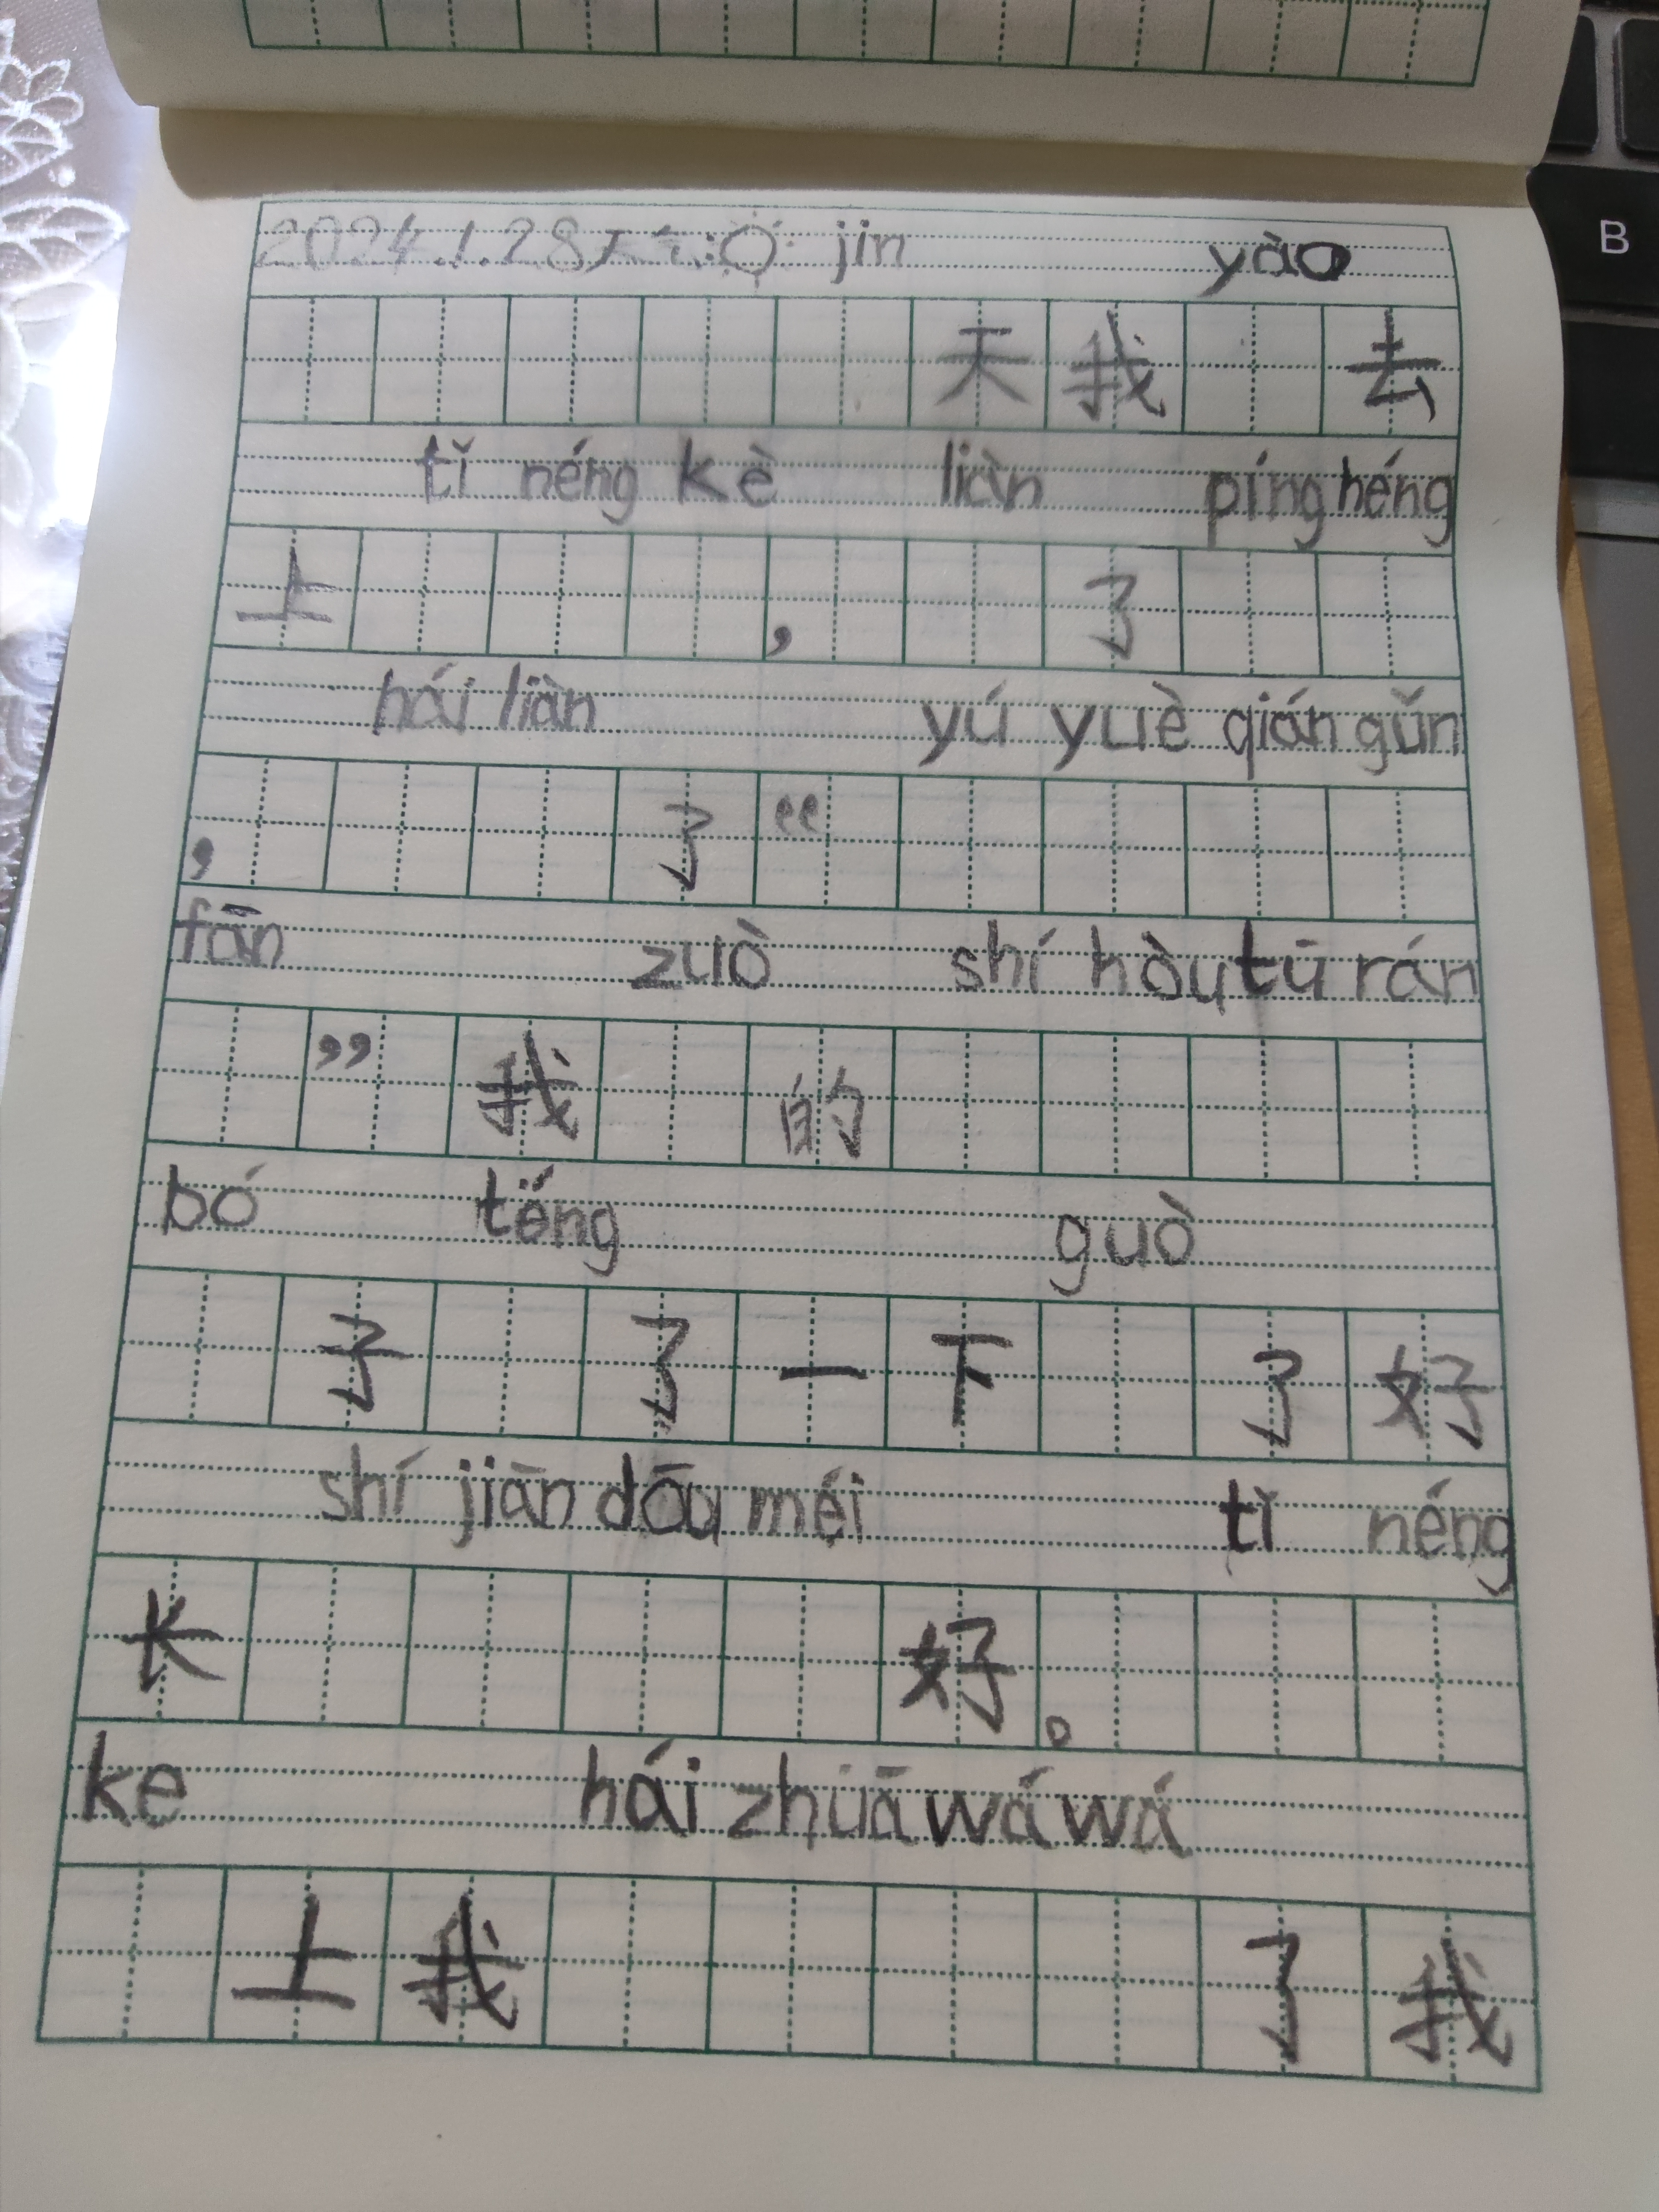 2024.1.28天气:☼ jin yào
天我去
tǐ néng kè liàn píng héng
上,了
hái liàn yú yuè qián gǔn
,了“
fān zuò shí hòu tū rán
”我的
bó téng guò
子了一下了好
shí jiān dōu méi tǐ néng
长好。
ke hái zhuā wá wá
上我了我
B